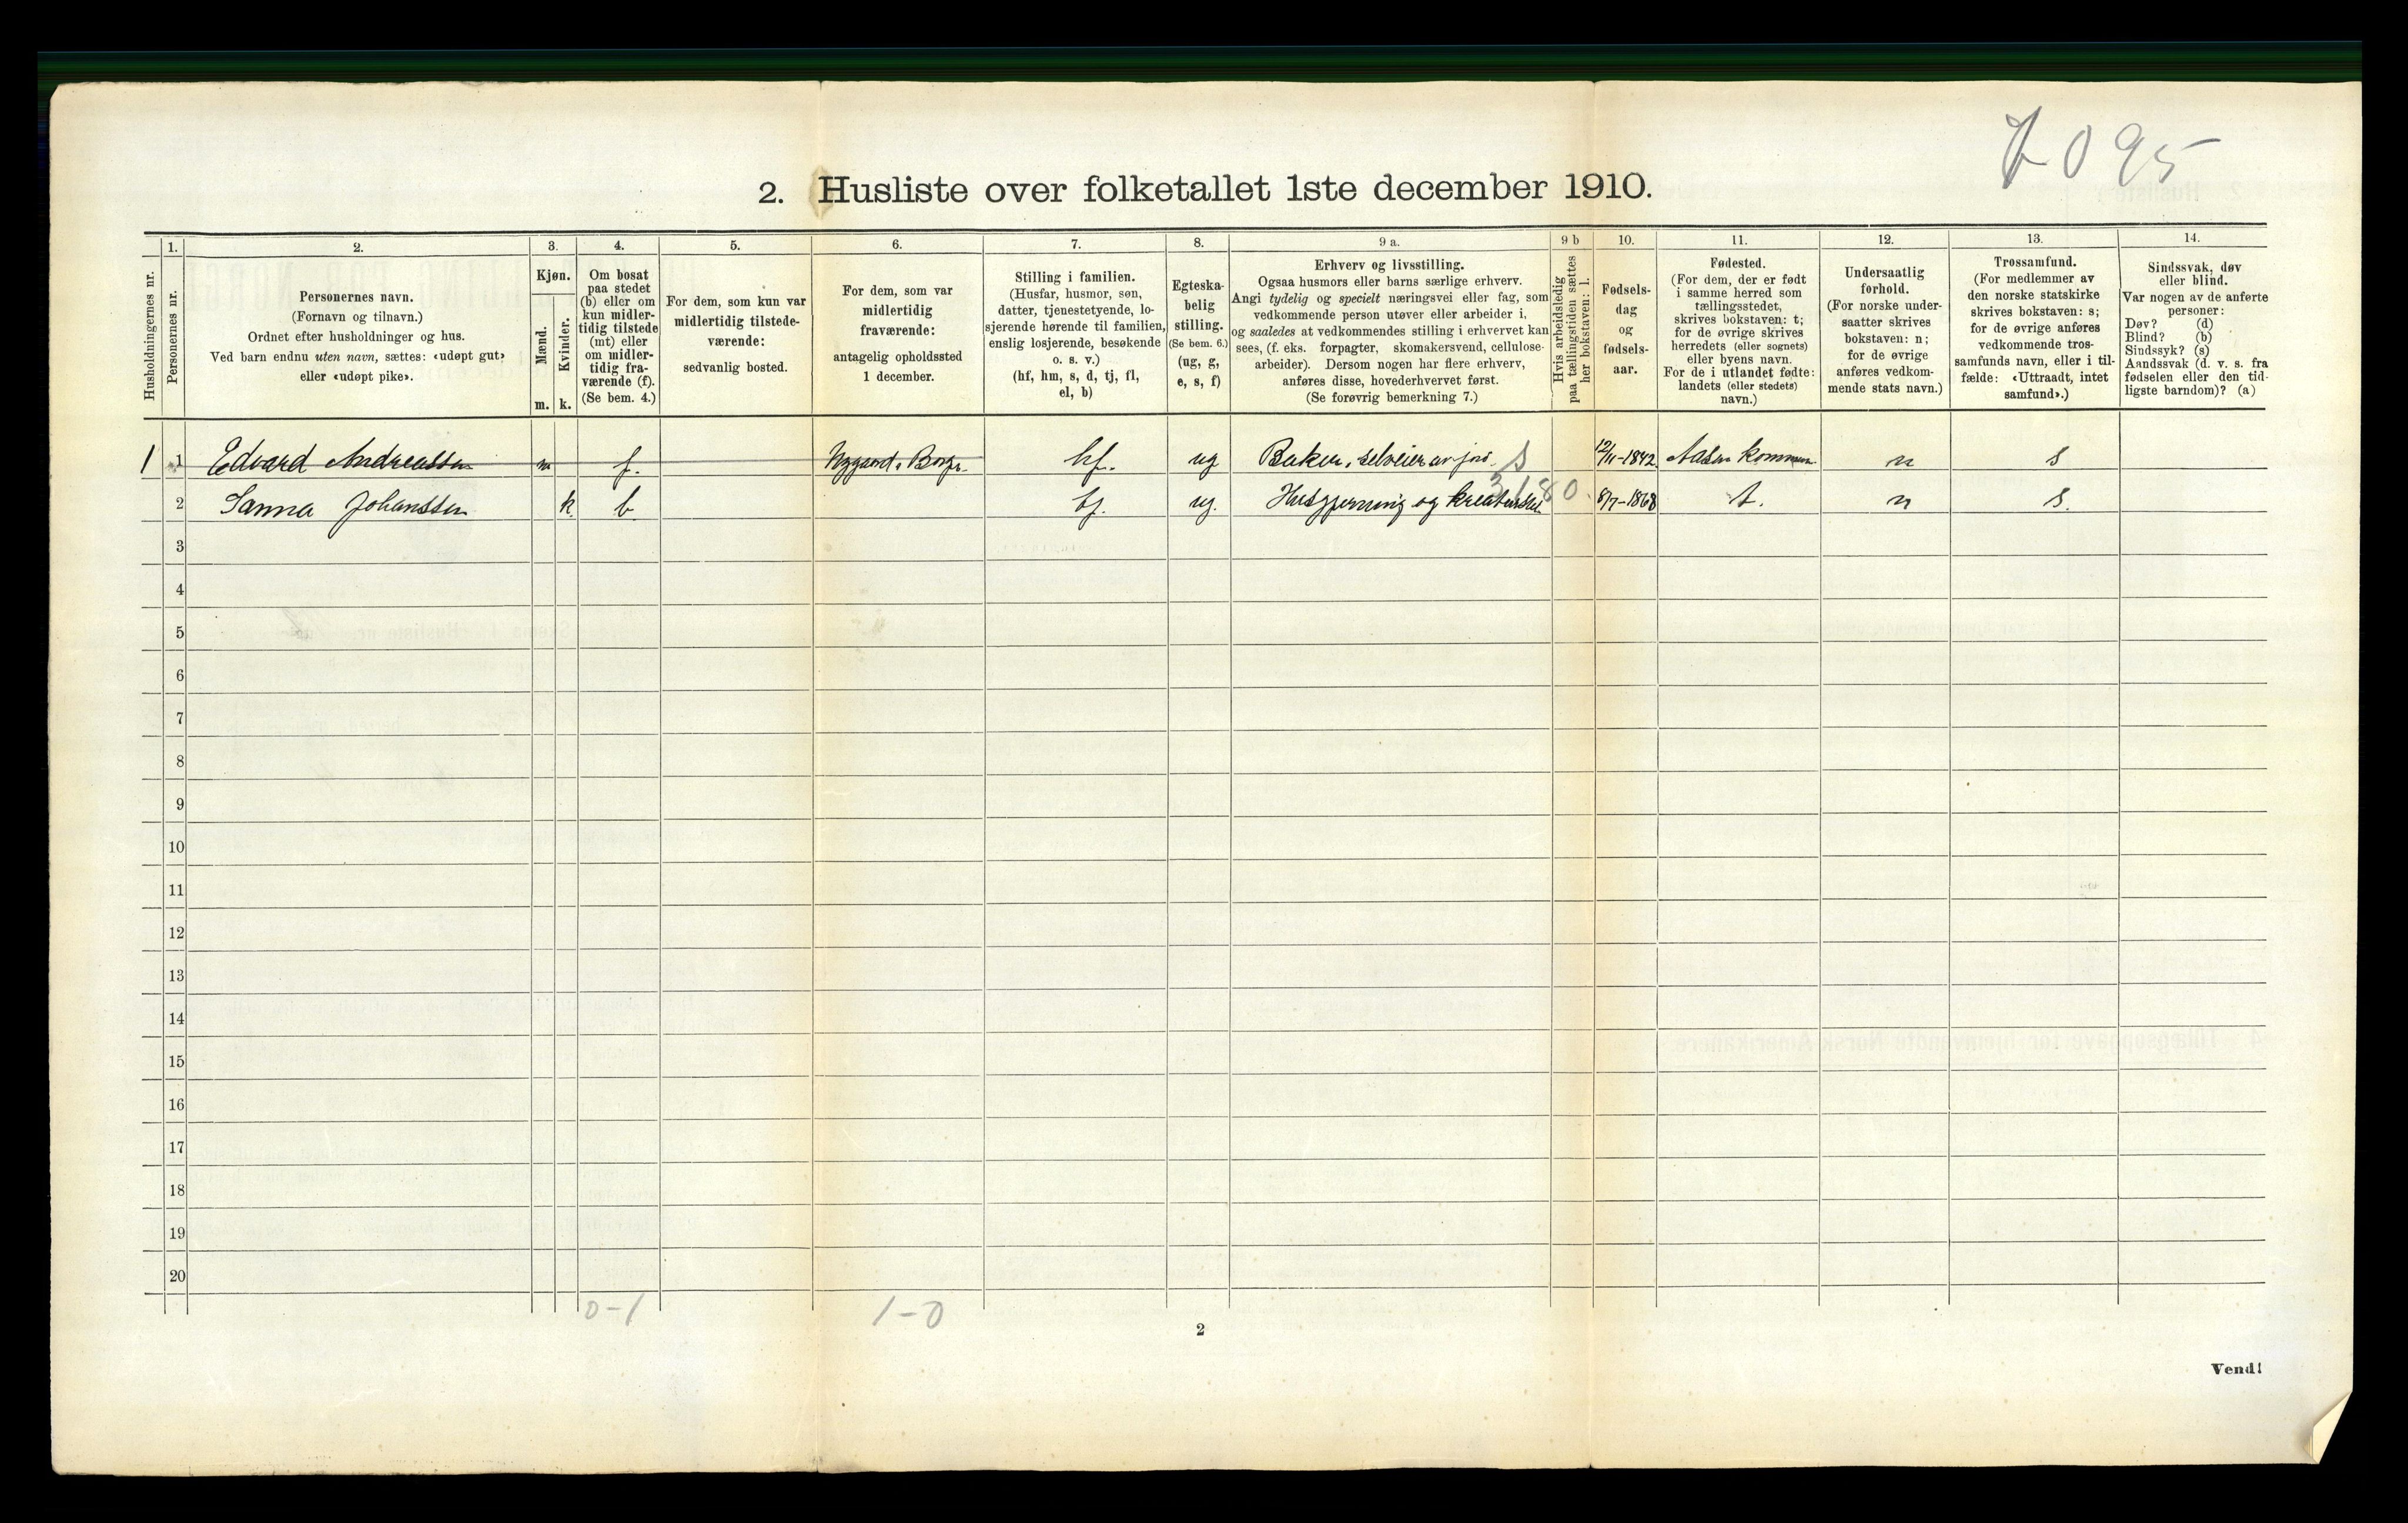 095
2. Husliste over folketallet 1ste december 1910.
Husholdningernes nr.
1.
Personernes nr.
2.
Personernes navn.
(Fornavn og tilnavn.)
Ordnet efter husholdninger og hus.
Ved barn endnu uten navn, sættes: «udøpt gut»
eller «udøpt pike».
3.
Kjøn.
Mænd.
m.
Kvinder.
k.
4.
Om bosat
paa stedet
(b) eller om
kun midler-
tidig tilstede
(mt) eller
om midler-
tidig fra-
værende (f).
(Se bem. 4.)
5.
For dem, som kun var
midlertidig tilstede-
værende:
sedvanlig bosted.
6.
For dem, som var
midlertidig
fraværende:
antagelig opholdssted
1 december.
7.
Stilling i familien.
(Husfar, husmor, søn,
datter, tjenestetyende, lo-
sjerende hørende til familien,
enslig losjerende, besøkende
o. s. v.)
(hf, hm, s, d, tj, fl,
el, b)
8.
Egteska-
belig
stilling.
(Se bem. 6.)
(ug, g,
e, s, f)
9 a.
Erhverv og livsstilling.
Ogsaa husmors eller barns særlige erhverv.
Angi tydelig og specielt næringsvei eller fag, som
vedkommende person utøver eller arbeider i,
og saaledes at vedkommendes stilling i erhvervet kan
sees, (f. eks. forpagter, skomakersvend, cellulose-
arbeider). Dersom nogen har flere erhverv,
anføres disse, hovederhvervet først.
(Se forøvrig bemerkning 7.)
9 b
Hvis arbeidsledig
paa tællingstiden sættes
her bokstaven: l.
10.
Fødsels-
dag
og
fødsels-
aar.
11.
Fødested.
(For dem, der er født
i samme herred som
tællingsstedet,
skrives bokstaven: t;
for de øvrige skrives
herredets (eller sognets)
eller byens navn.
For de i utlandet fødte:
landets (eller stedets)
navn.)
12.
Undersaatlig
forhold.
(For norske under-
saatter skrives
bokstaven: n;
for de øvrige
anføres vedkom-
mende stats navn.)
13.
Trossamfund.
(For medlemmer av
den norske statskirke
skrives bokstaven: s;
for de øvrige anføres
vedkommende tros-
samfunds navn, eller i til-
fælde: «Uttraadt, intet
samfund».)
14.
Sindssvak, døv
eller blind.
Var nogen av de anførte
personer:
Døv? (d)
Blind? (b)
Sindssyk? (s)
Aandssvak (d. v. s. fra
fødselen eller den tid-
ligste barndom)? (a)
1 1 Edvard Andreassen m f. Borge. hf. ug Baker, selveier av jord. S 12/11-1842 kommun n s
2 Sanna Johanssen k b tj. ug. Husgjerning og kreaturstel 3180 8/7-1868 t. n s.
3
4
5
6
7
8
9
10
11
12
13
14
15
16
17
18
19
20
0-1 1-0
2
Vend!